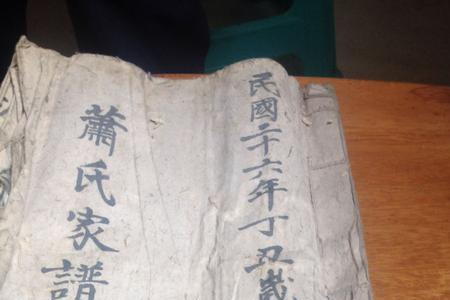 民國二十六年丁丑歲
蕭氏家譜